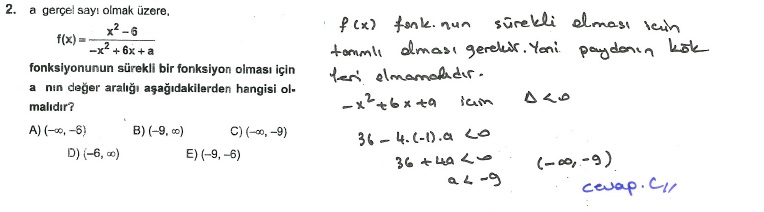 2. a gerçel sayı olmak üzere,
f(x) = x² – 6 / –x² + 6x + a
fonksiyonunun sürekli bir fonksiyon olması için
a nın değer aralığı aşağıdakilerden hangisi ol-
malıdır?
A) (–∞, –6) B) (–9, ∞) C) (–∞, –9)
D) (–6, ∞) E) (–9, –6)
f(x) fonk.nun sürekli olması için
tanımlı olması gerekir. Yani paydanın kök
leri olmamalıdır.
-x²+6x+a için Δ<0
36 - 4.(-1).a <0
36 + 4a <0
a < -9 (-∞, -9)
cevap. C//